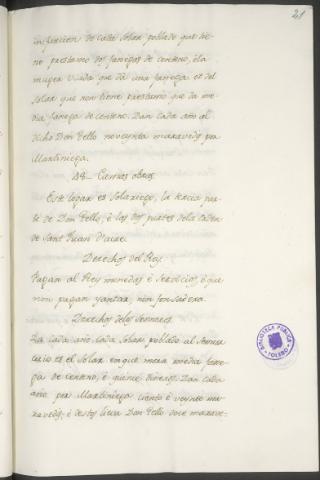 21
infurcion de cada solar poblado que tie-
ne prestamo dos fanegas de centeno, é la
muger viuda que dá una fanega et del
solar que non tiene prestamo que da me-
dia fanega de centeno. Dan cada año al
dicho Don Tello noventa maravedis por
Martiniega.
48– Cuevas
Este logar es Solariego, la tercia par-
te de Don Tello, é los dos partes dela orden
de Sant Juan D'acre.
Derechos del Rey.
Pagan al Rey monedas é servicio, é que
non pagan yantar, nin fonsadera.
Derechos delos Sennores
Da cada año cada Solar poblado al Sennor
cuio es el Solar en que mora media fane-
ga de centeno, é quince dineros. Dan cada
año por Martiniega ciento é veynte ma-
ravedis; é destos lieva Don Tello doce marave-
BIBLIOTECA PUBLICA
TOLEDO